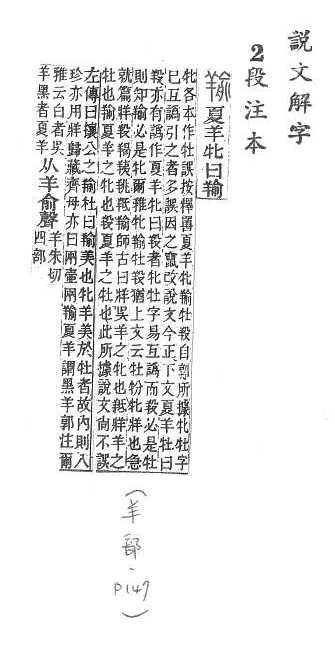 說文解字
2段注本
羭 夏羊牝曰羭
牝各本作牡誤按釋嘼夏羊牝羭牡羖自郭所據牝牡字
巳互譌引之者多誤因之竄改說文今正下文夏羊牡曰
羖亦有譌作夏羊牝曰羖者牝牡字易互譌而羖必是牡
則知羭必是牝爾雅牝羭牡羖猶上文云牡羒牝牂也急
就篇牂羖羯羠羝羭師古曰牂吳羊之牝也羝牂羊之
牡也羭夏羊之牝也羖夏羊之牡也此所據說文尙不誤
左傳曰攘公之羭杜曰羭美也牝羊美於牡者故內則八
珍亦用牂歸藏齊母亦曰兩壷兩羭夏羊謂黑羊郭注爾
雅云白者吳
羊黑者夏羊
从羊俞聲
羊朱切
四部
(羊部、P147)